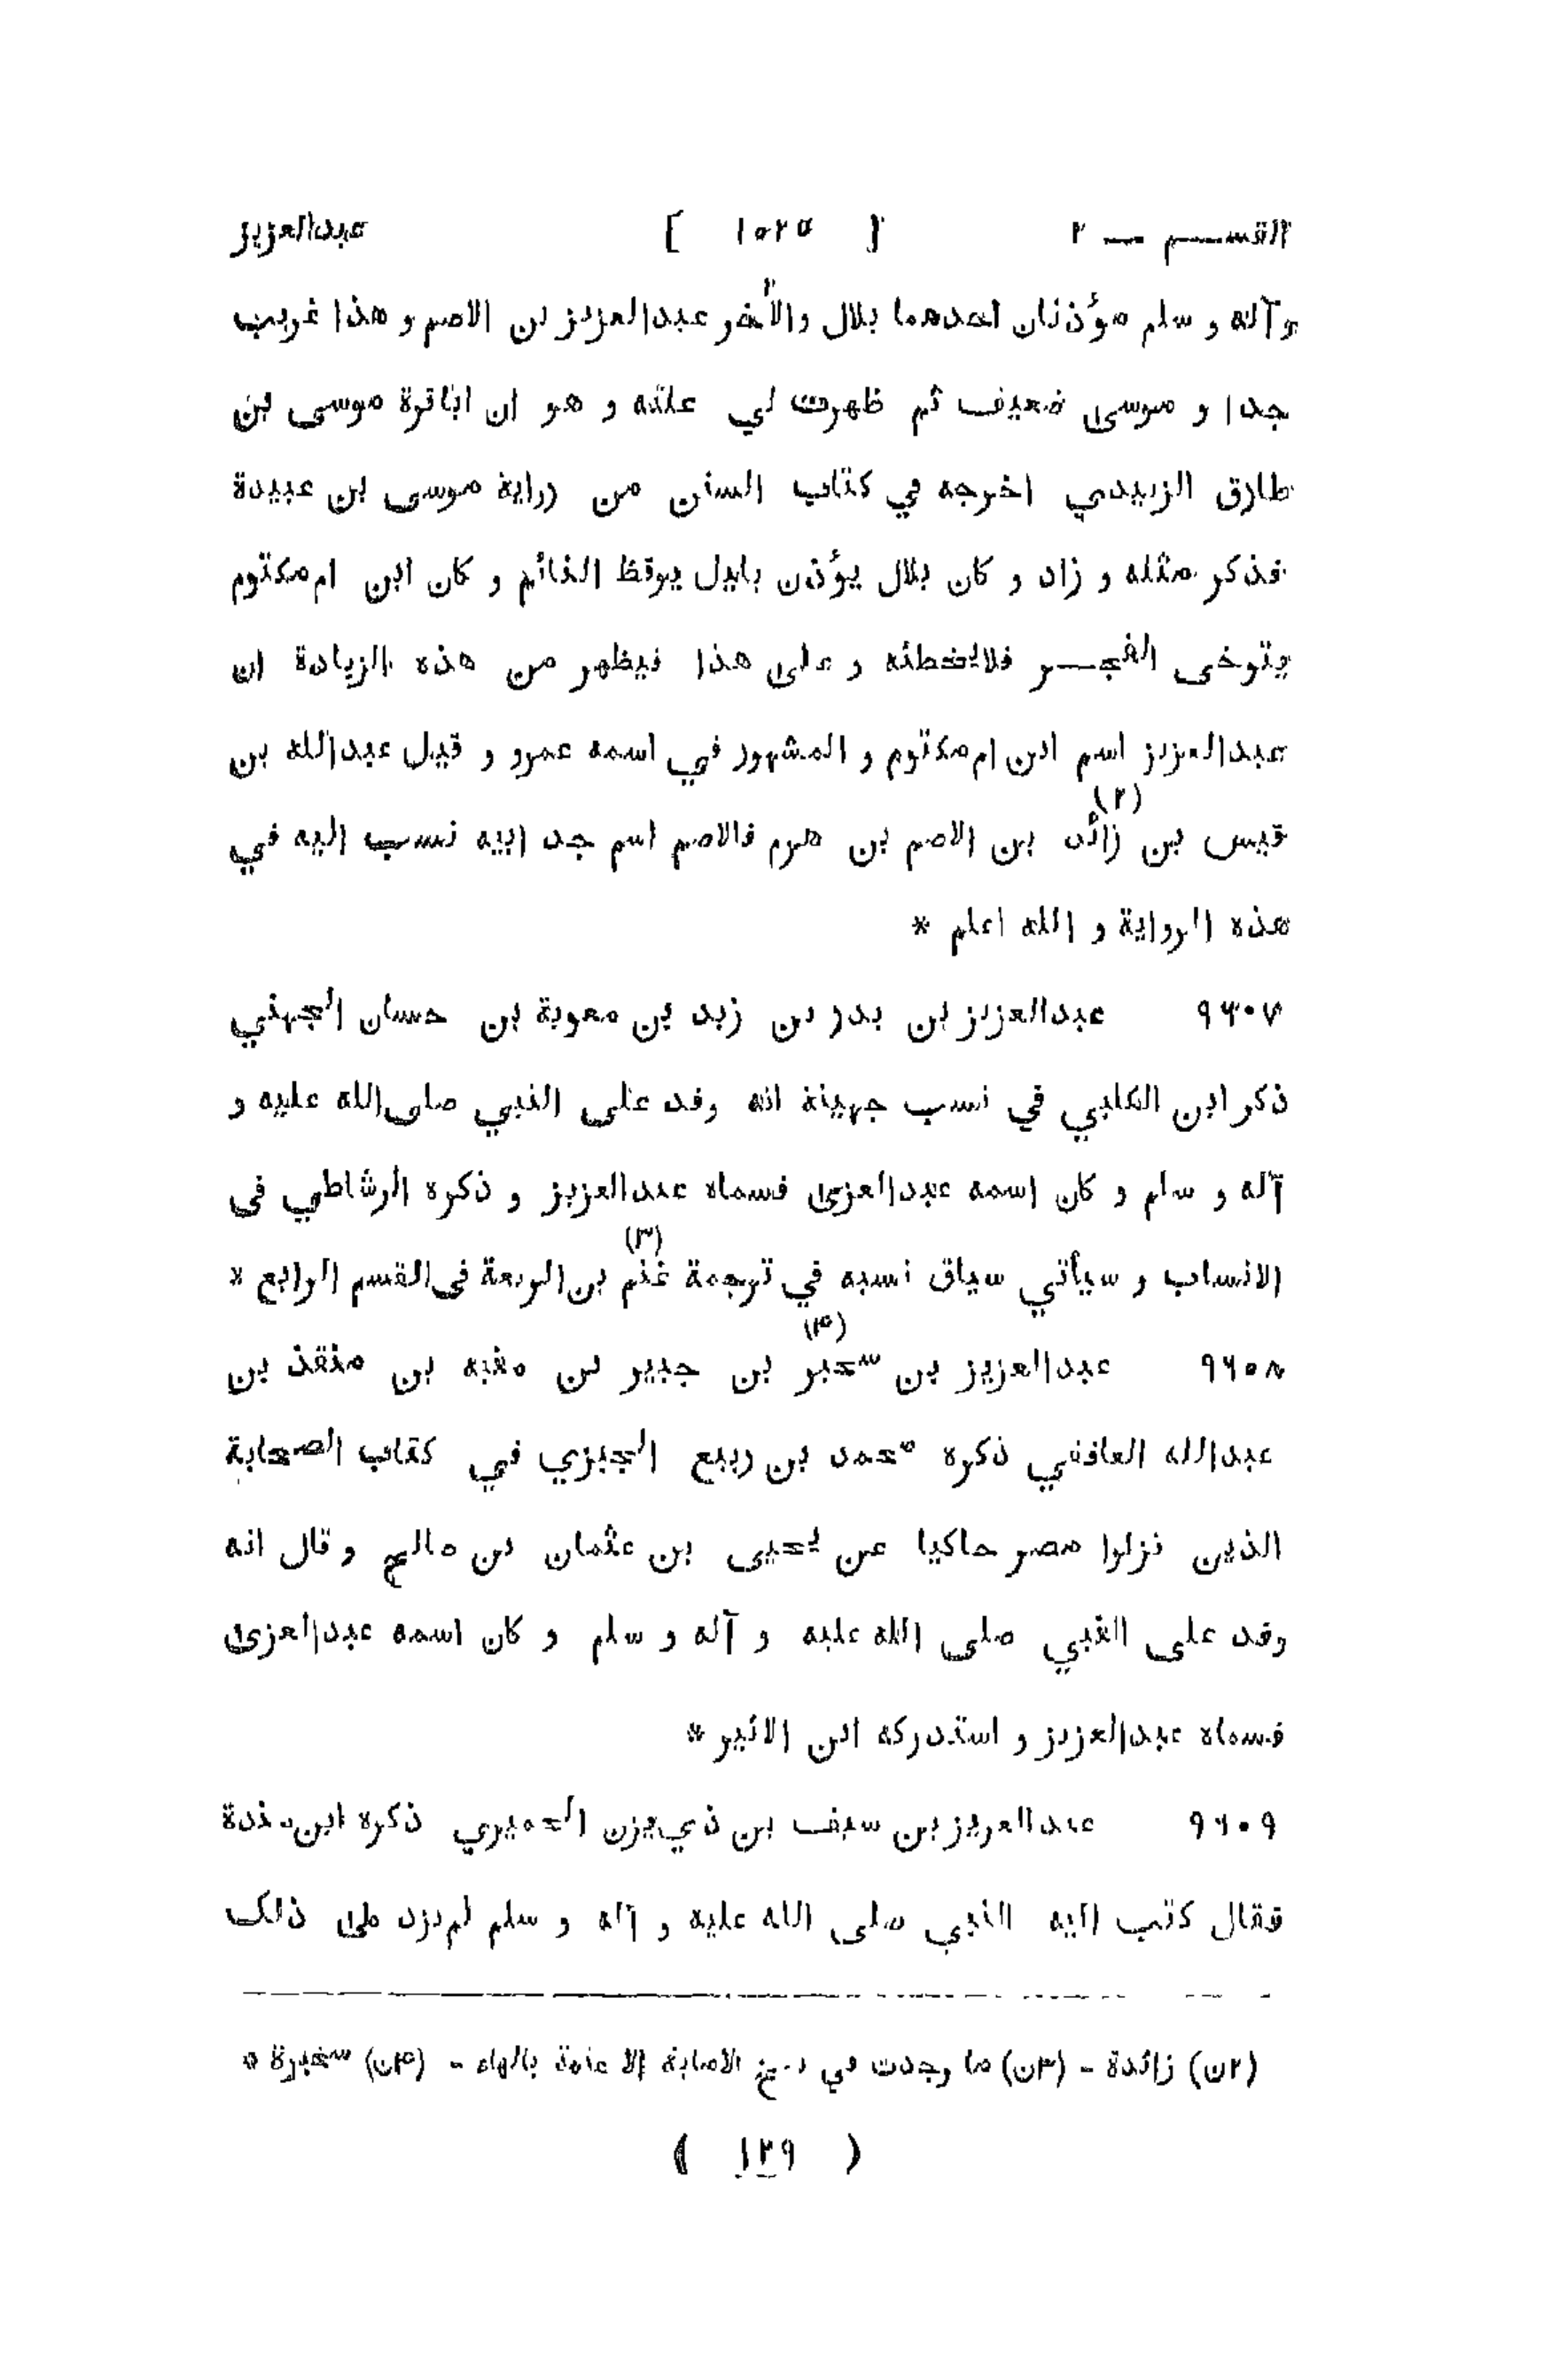 القسم — ٢ [ ١٠٢٥ ] عبدالعزيز
وآله و سلم مؤذنان احدهما بلال والآخر عبدالعزيز بن الاصم و هذا غريب
جدا و موسى ضعيف ثم ظهرت لي علته و هو ان اباقرة موسى بن
طارق الزبيدي اخرجه في كتاب السنن من رواية موسى بن عبيدة
فذكر مثله و زاد و كان بلال يؤذن بليل يوقظ النائم و كان ابن ام مكتوم
يتوخى الفجر فلا يخطئه و على هذا فيظهر من هذه الزيادة ان
عبدالعزيز اسم ابن ام مكتوم و المشهور في اسمه عمرو و قيل عبدالله بن
قيس بن زائد (٢) بن الاصم بن هرم فالاصم اسم جد ابيه نسب اليه في
هذه الرواية و الله اعلم *
٩٦٠٧ عبدالعزيز بن بدر بن زيد بن معوية بن حسان الجهني
ذكر ابن الكلبي في نسب جهينة انه وفد على النبي صلى الله عليه و
آله و سلم و كان اسمه عبدالعزى فسماه عبدالعزيز و ذكره الرشاطي فى
الانساب و سيأتي سياق نسبه في ترجمة غنم (٣) بن الربعة فى القسم الرابع *
٩٦٠٨ عبدالعزيز بن سحبر (٤) بن جبير بن منبه بن منقذ بن
عبدالله الغافقي ذكره محمد بن ربيع الجيزي في كتاب الصحابة
الذين نزلوا مصر حاكيا عن يحيى بن عثمان بن صالح و قال انه
وفد على النبي صلى الله عليه و آله و سلم و كان اسمه عبدالعزى
فسماه عبدالعزيز و استدركه ابن الاثير *
٩٦٠٩ عبدالعزيز بن سيف بن ذي يزن الحميري ذكره ابن مندة
فقال كتب اليه النبي صلى الله عليه و آله و سلم لم يزد على ذلك
(٢ن) زائدة - (٣ن) ما وجدت في نسخ الاصابة الا بالهاء - (٤ن) سخبرة *
( ١٢٩ )